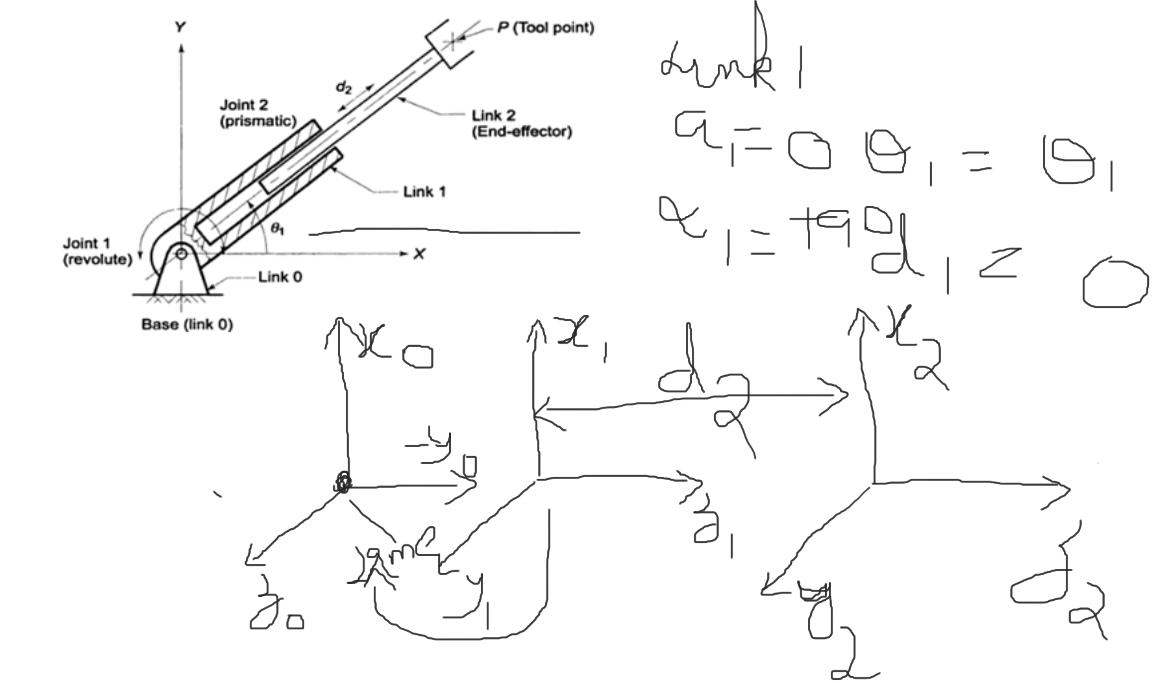 Y
P (Tool point)
d₂
Joint 2
(prismatic)
Link 2
(End-effector)
Link 1
θ₁
Joint 1
(revolute)
X
Link 0
Base (link 0)
Link 1
a₁ = 0 θ₁ = θ₁
α₁ = +90 d₁ = 0
x₀
x₁
d₂
x₂
-y₀
z₁
z₀
y₁
z₂
y₂